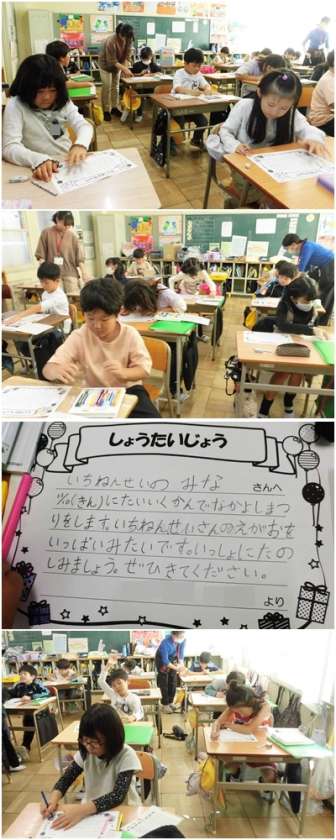 しょうたいじょう
いちねんせいの みな さんへ
11/10(きん)にたいいくかんでなかよしまつ
りをします。いちねんせいさんのえがおを
いっぱいみたいです。いっしょにたの
しみましょう。ぜひきてください。
より